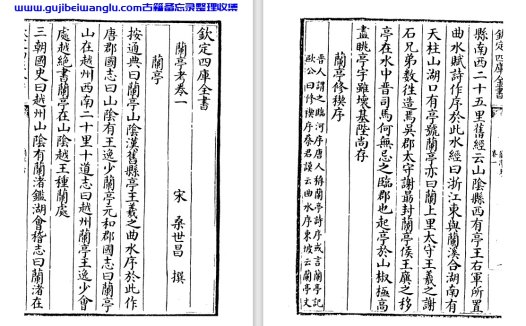 www.gujibeiwanglu.com古籍备忘录整理收集
欽定四庫全書
蘭亭考卷一
宋 桑世昌 撰
蘭亭
按通典曰蘭亭山陰漢舊縣亭王羲之曲水序於此作
唐郡國志曰山陰有王逸少蘭亭元和郡國志曰蘭亭
山在越州西南二十里十道志曰越州蘭亭王逸少會
處越絶書蘭亭在山陰越王種蘭處
三朝國史曰越州山陰有蘭渚鑑湖會稽志曰蘭渚在
欽定四庫全書
縣南西二十五里舊經云山陰縣西有亭王右軍所置
曲水賦詩作序於此水經曰浙江東與蘭溪合湖南有
天柱山湖口有亭號蘭亭亦曰蘭上里太守王羲之謝
石兄弟數往造焉吳郡太守謝勗封蘭亭侯王廙之移
亭在水中晉司馬何無忌之臨郡也起亭於山椒極高
盡眺亭宇雖壞基陛尚存
蘭亭修禊序
晉人謂之臨河序唐人稱蘭亭詩序或言蘭亭記
歐公曰修禊序蔡君謨云曲水序東坡云蘭亭文